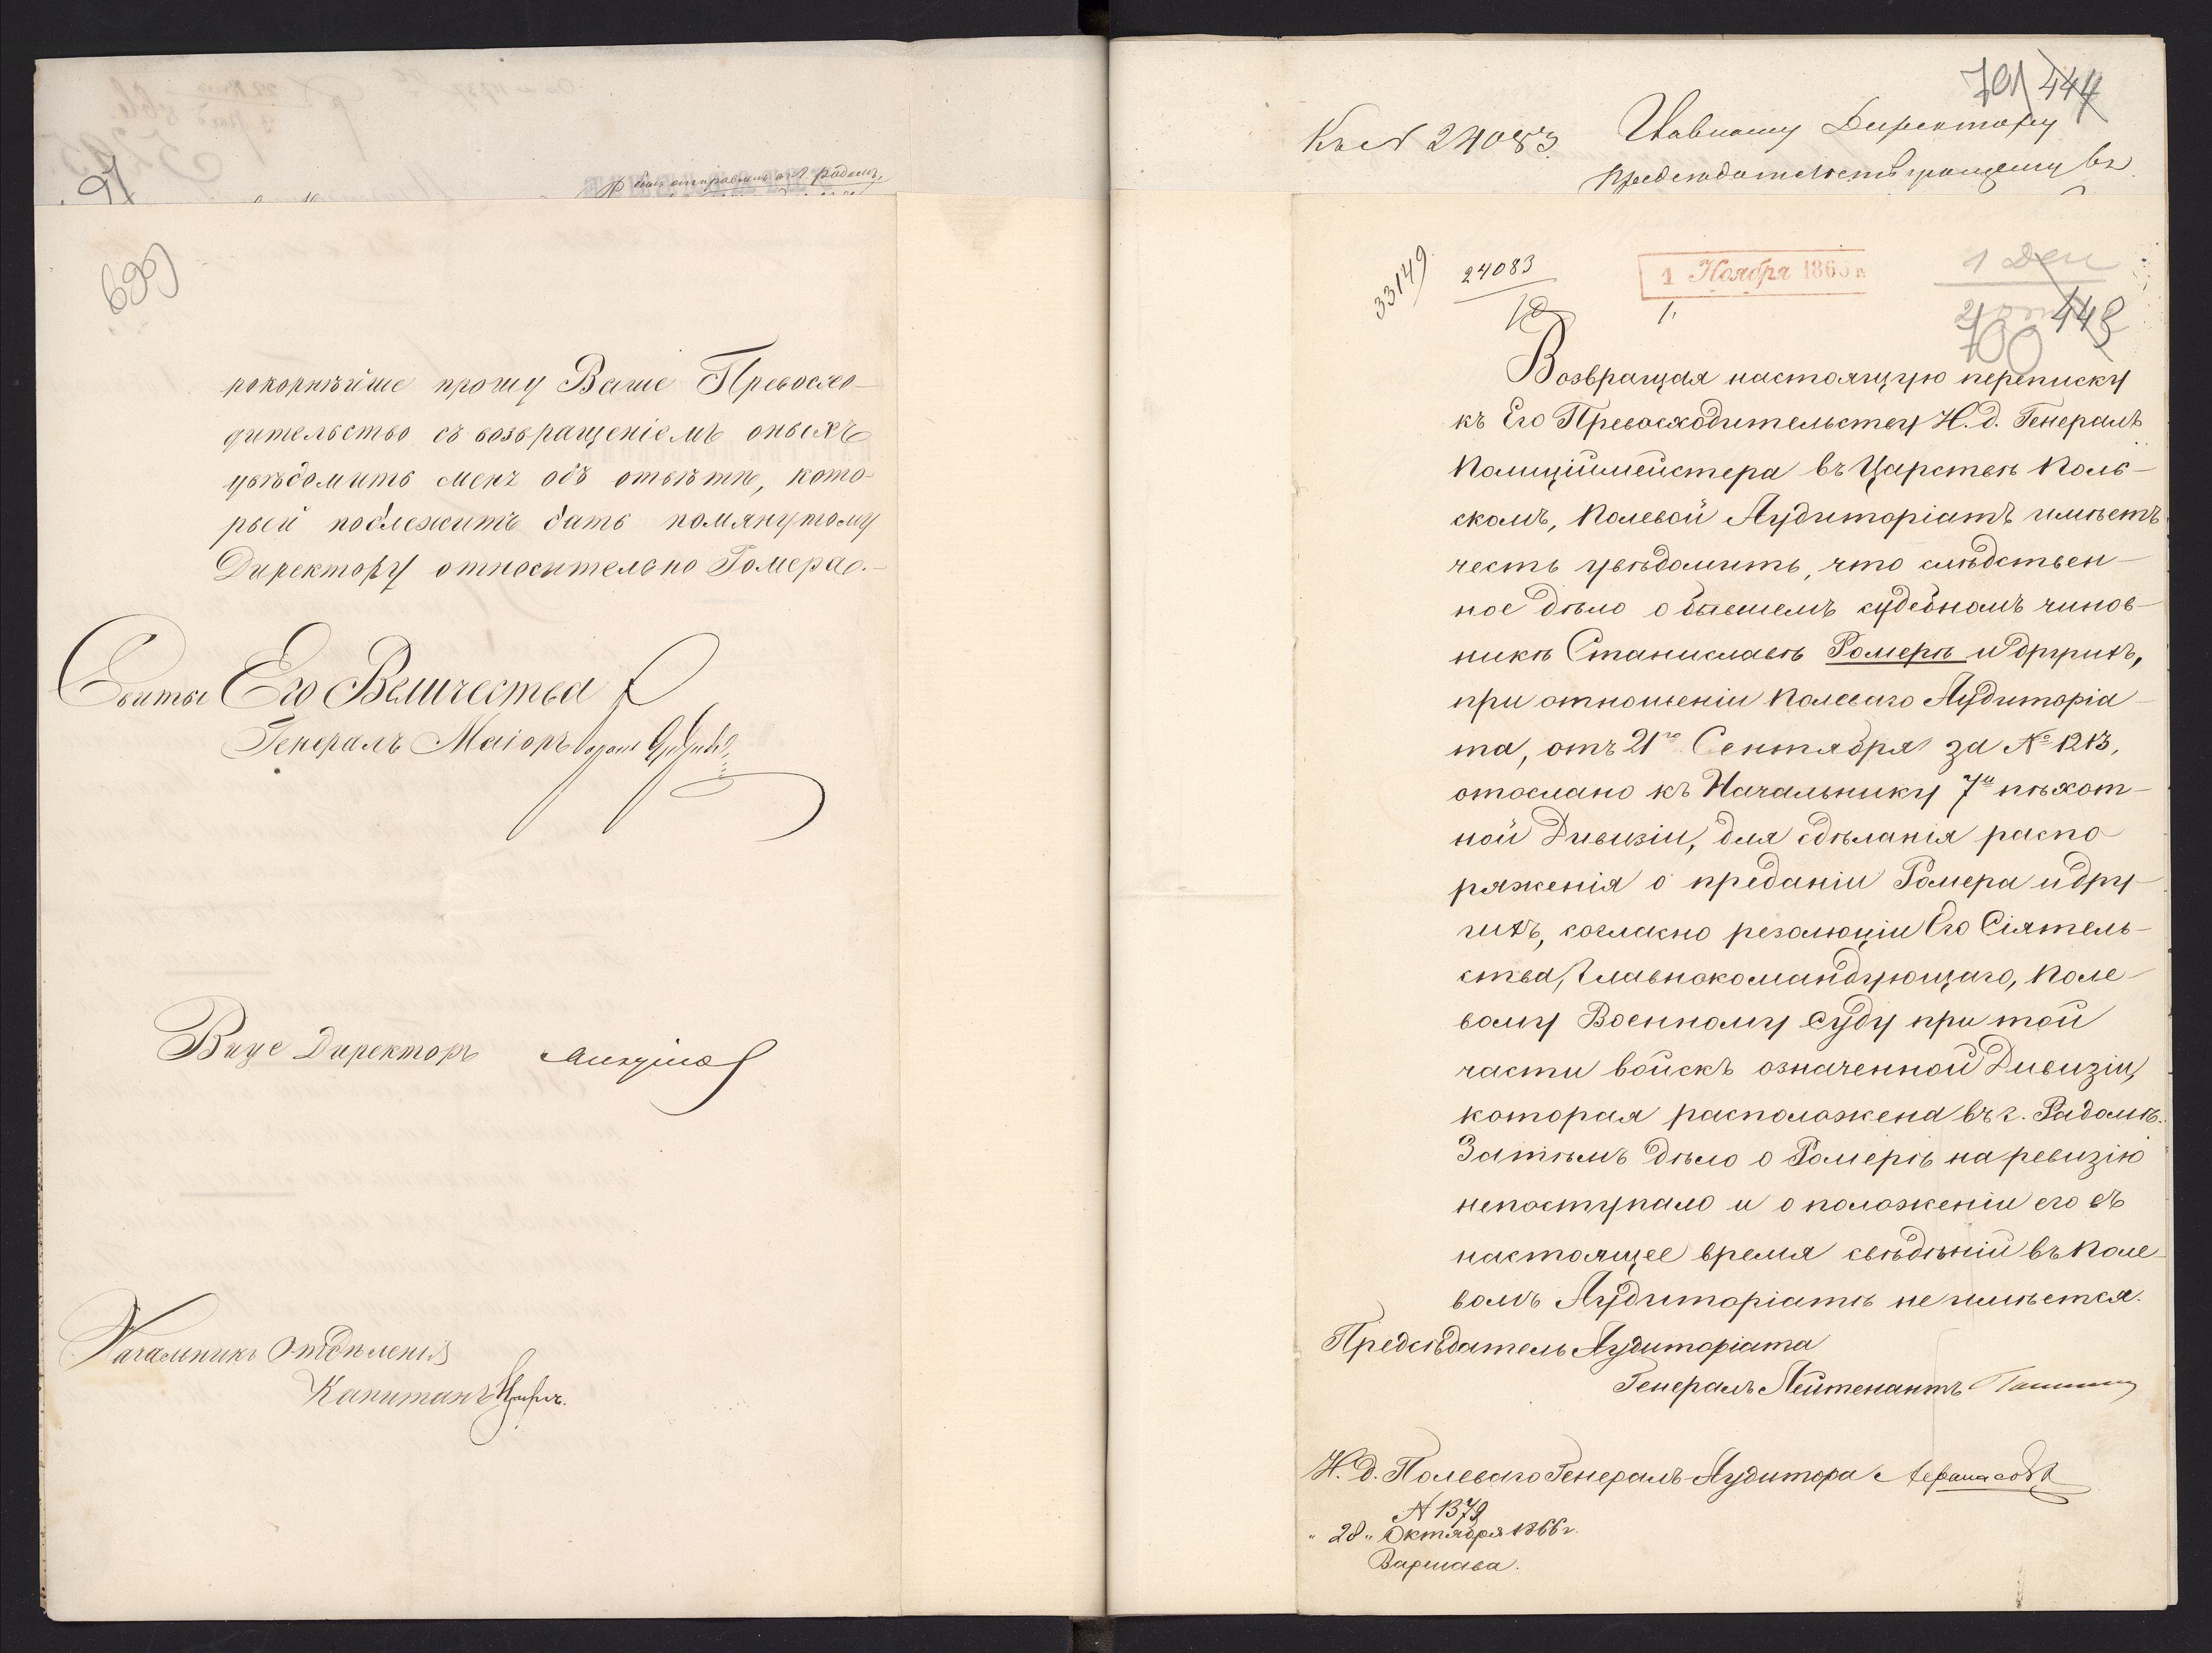 былъ отправленъ въ г. Радомъ,
669
покорнѣйше прошу Ваше Превосхо-
дительство съ возвращеніемъ оныхъ
увѣдомить меня объ отвѣтѣ, кото-
рый подлежитъ дать помянутому
Директору относительно Ромера.-
Свиты Его Величества
Генералъ Маіоръ
Вице Директоръ
Начальникъ Отдѣленія
Капитанъ
701 444
Къ № 24083 Главному Директору
Предсѣдательствующему въ
33149 24083 1 Ноября 1866 1 Ден
12 1. 443
700
Возвращая настоящую переписку
къ Его Превосходительству И. д. Генералъ
Полиціймейстера въ Царствѣ Поль-
скомъ, Полевой Аудиторіатъ имѣетъ
честь увѣдомить, что слѣдствен-
ное дѣло о бывшемъ судебномъ чинов-
никѣ Станиславѣ Ромерѣ и другихъ,
при отношеніи Полеваго Аудиторіа-
та, отъ 21го Сентября за № 1213,
отослано къ Начальнику 7й пѣхот-
ной Дивизіи, для сдѣланія распо-
ряженія о преданіи Ромера и дру-
гихъ, согласно резолюціи Его Сіятель-
ства, Главнокомандующаго, Поле-
вому Военному Суду при той
части войскъ означенной Дивизіи,
которая расположена въ г. Радомѣ.
Затѣмъ дѣло о Ромерѣ на ревизію
непоступало и о положеніи его въ
настоящее время свѣдѣній въ Поле-
вомъ Аудиторіатѣ не имѣется.
Предсѣдатель Аудиторіата
Генералъ Лейтенантъ
И. Д. Полеваго Генералъ-Аудитора
№ 1379
"28" Октября 1866 г.
Варшава.